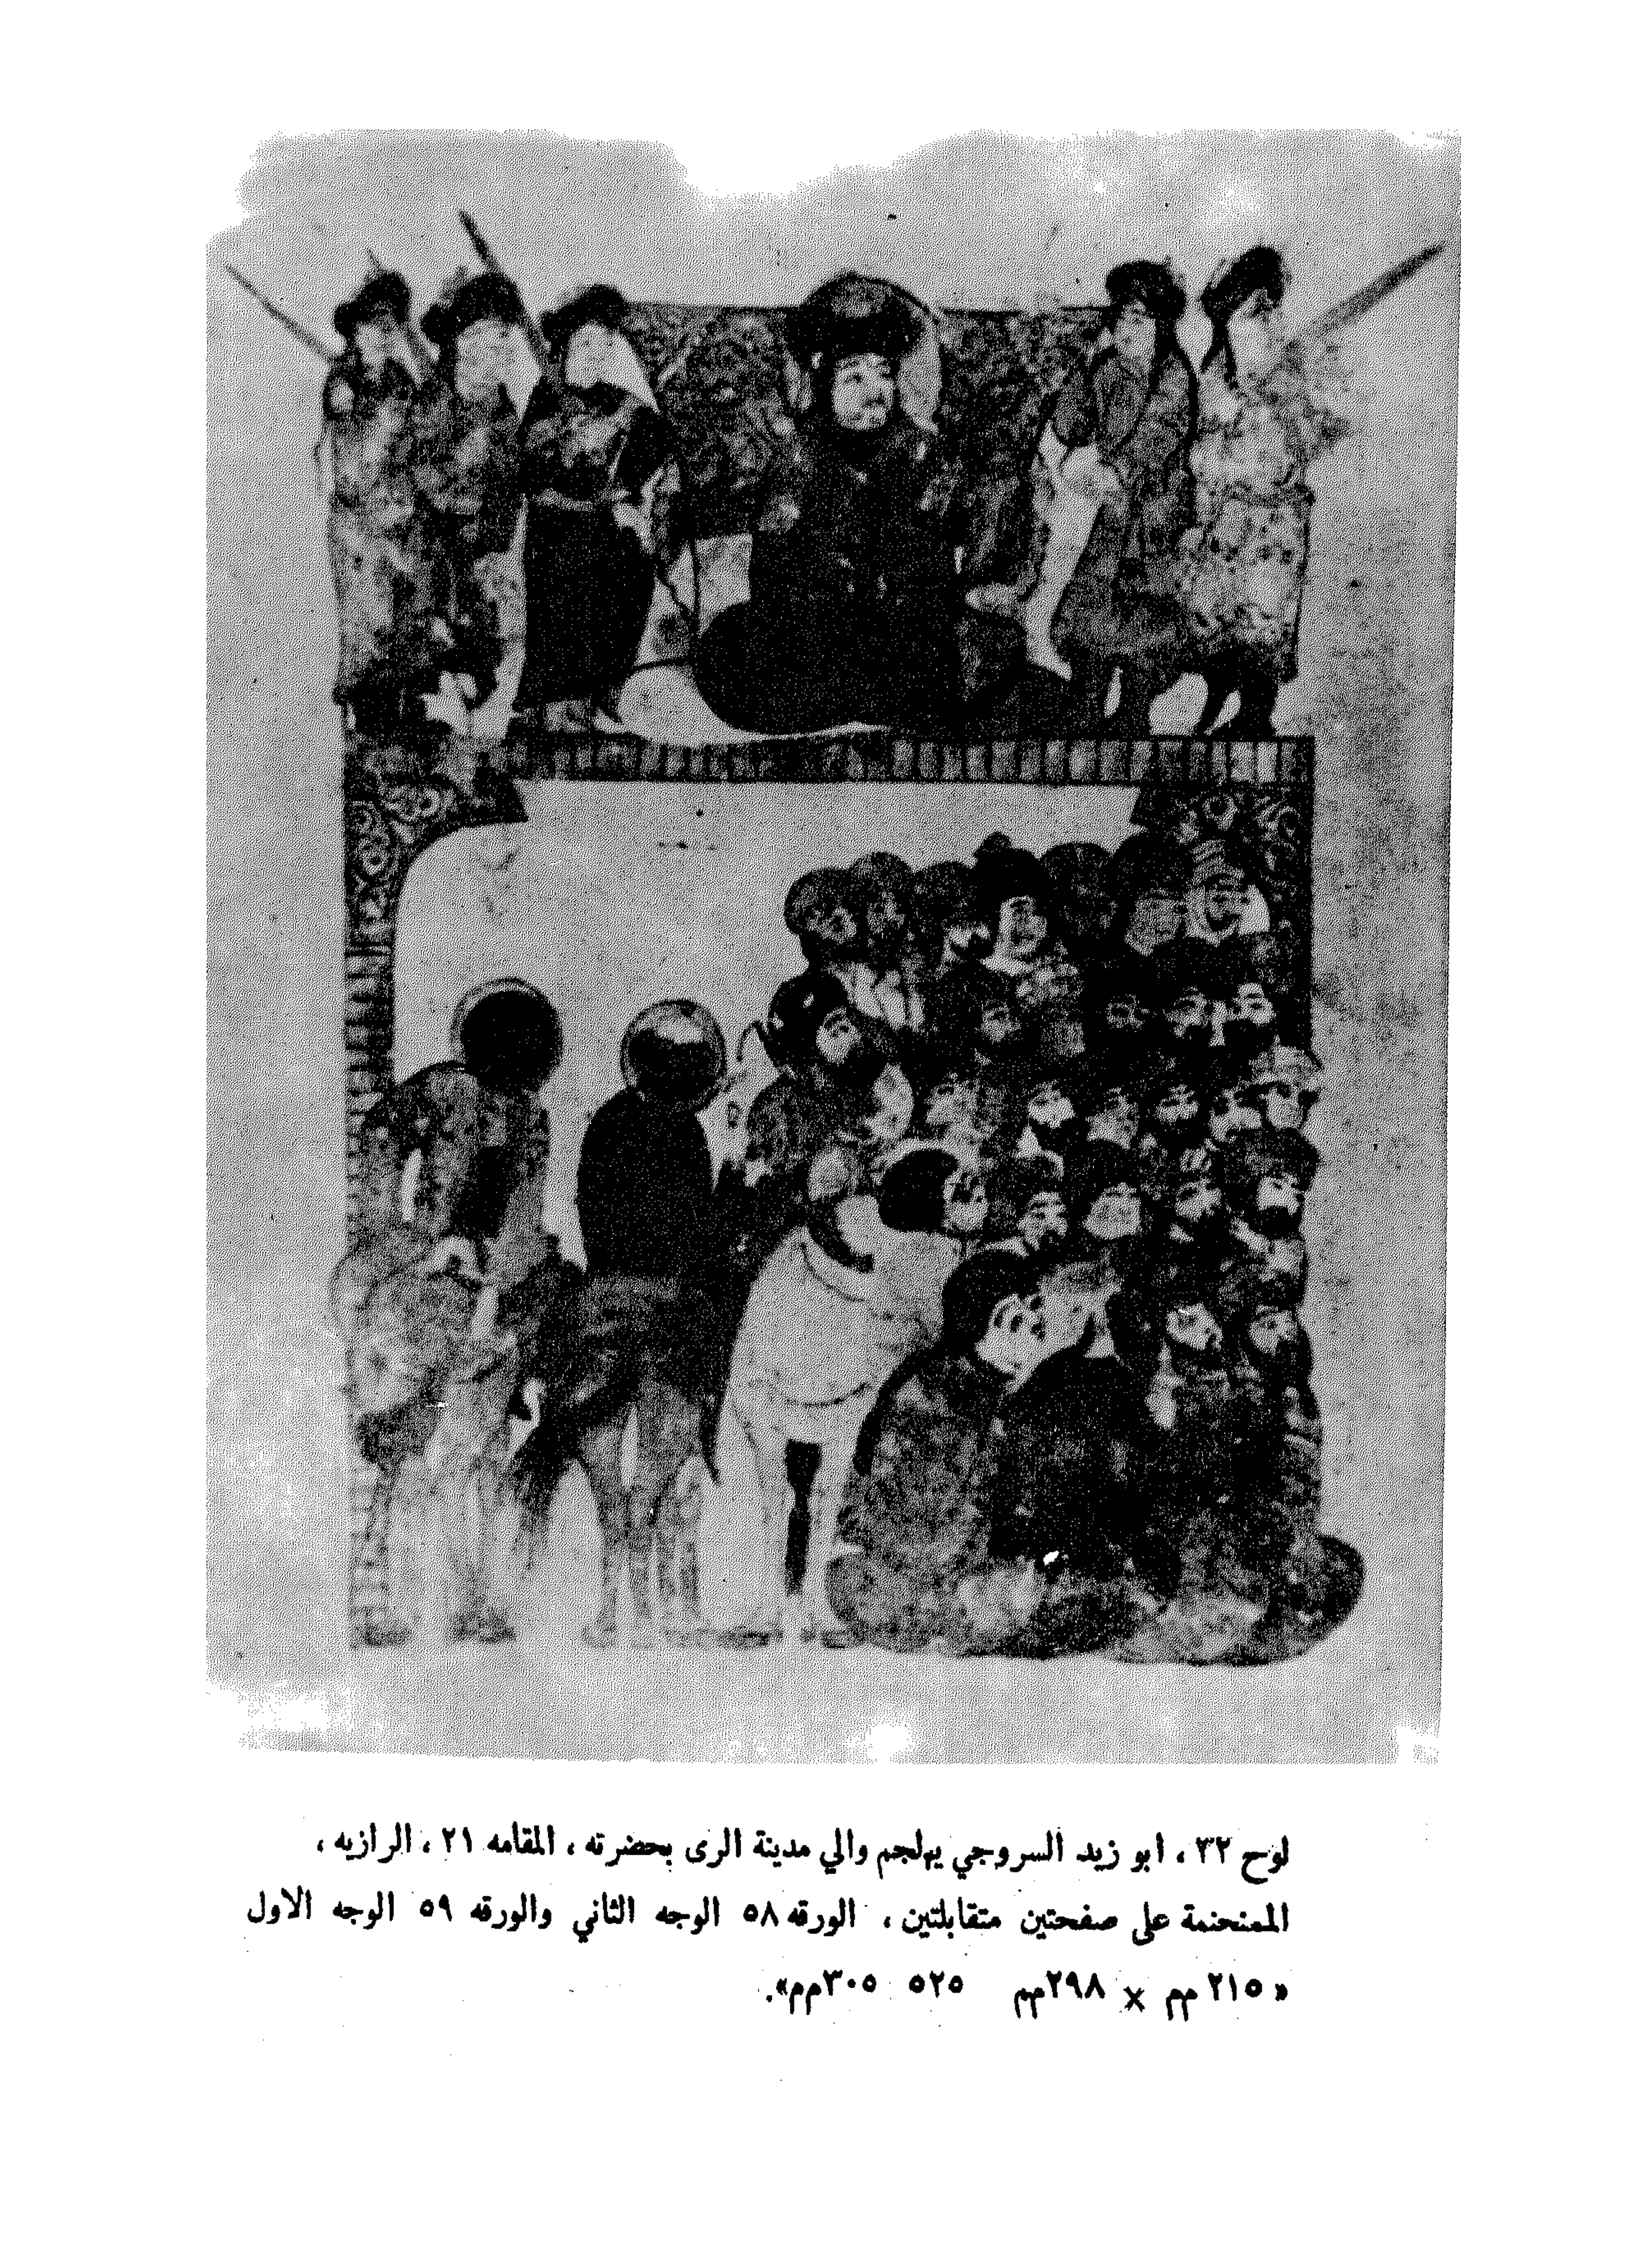 لوح ٣٢ ، ابو زيد السروجي يهلجم والي مدينة الرى بحضرته ، المقامه ٢١ ، الرازيه ،
الممنحنمة على صفحتين متقابلتين ، الورقه ٥٨ الوجه الثاني والورقه ٥٩ الوجه الاول
« ٢١٥ مم × ٢٩٨مم ٥٢٥ ٣٠٥مم».